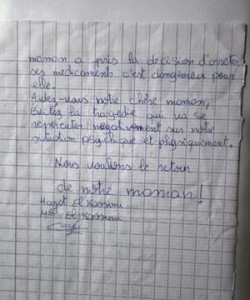 maman a pris la decision d'arrêter
ses medicaments c'est dangereux pour
elle.
Aidez-vous notre chère maman,
Evitez la tragedie qui va se
repercuter négativement sur notre
situation psychique et physiquement.
Nous voulons le retour
de notre maman!